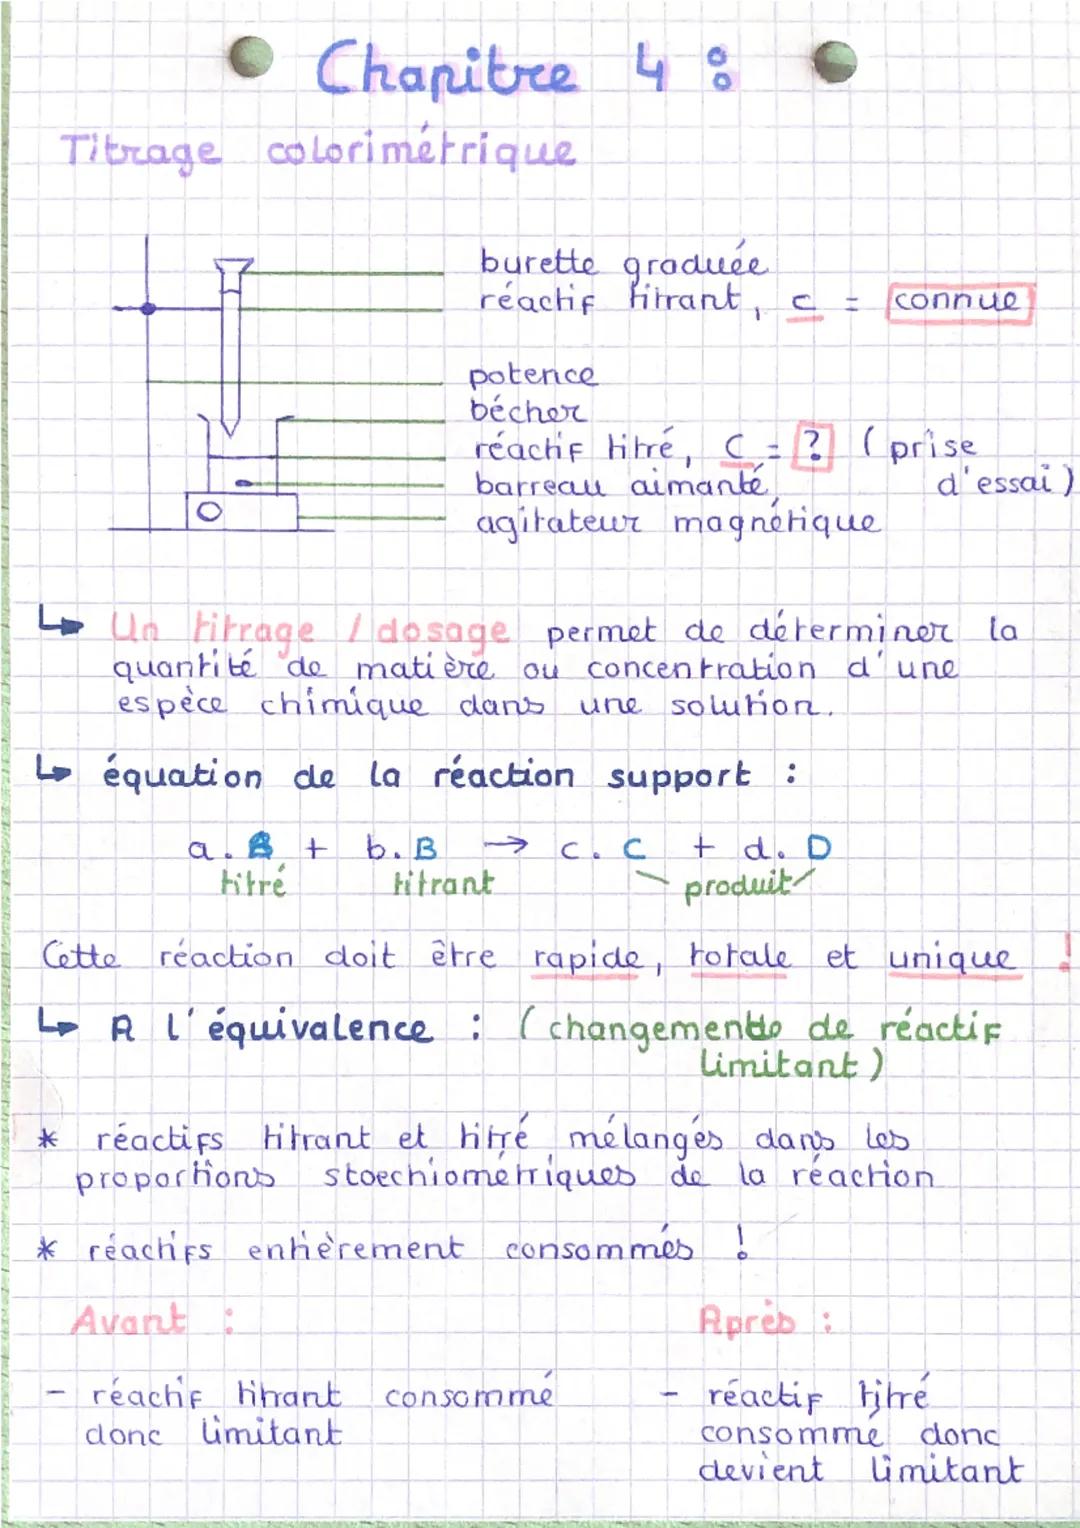 Chapitre 4 :
Titrage colorimétrique
burette graduée
réactif titrant, c = connue
potence
bécher
réactif titré, C = ? (prise d'essai)
barreau aimanté
agitateur magnétique
↳ Un titrage / dosage permet de déterminer la
quantité de matière ou concentration d'une
espèce chimique dans une solution.
↳ équation de la réaction support :
a. A + b. B → c. C + d. D
titré titrant produit
Cette réaction doit être rapide, totale et unique !
↳ A l'équivalence : (changement de réactif
limitant)
* réactifs titrant et titré mélangés dans les
proportions stoechiométriques de la réaction
* réactifs entièrement consommés !
Avant :
- réactif titrant consommé
donc limitant
Après :
- réactif titré
consommé donc
devient limitant